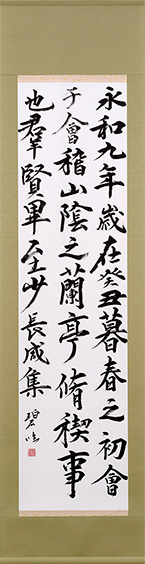 永和九年歲在癸丑暮春之初會
于會稽山陰之蘭亭脩禊事
也羣賢畢至少長咸集